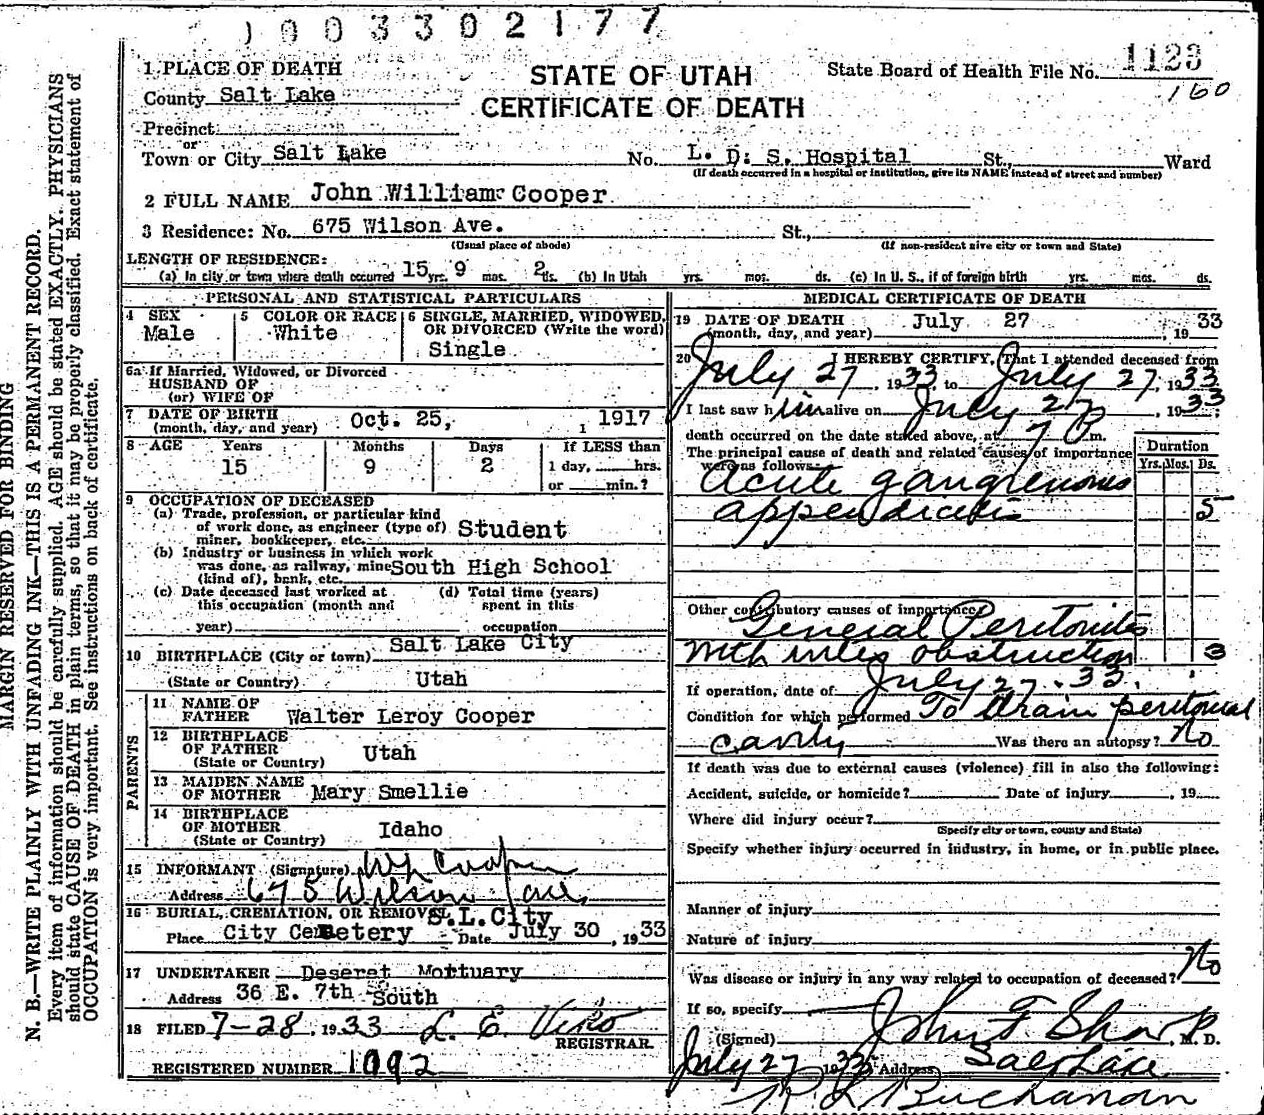 1003302177
1 PLACE OF DEATH
STATE OF UTAH
CERTIFICATE OF DEATH
State Board of Health File No. 1123
160
County Salt Lake
Precinct
or
Town or City Salt Lake No. L. D. S. Hospital St., Ward
(If death occurred in a hospital or institution, give its NAME instead of street and number)
2 FULL NAME John William Cooper
3 Residence: No. 675 Wilson Ave. St.,
(Usual place of abode) (If non-resident give city or town and State)
LENGTH OF RESIDENCE:
(a) In city or town where death occurred 15 yrs. 9 mos. 2 ds. (b) In Utah yrs. mos. ds. (c) In U. S., if of foreign birth yrs. mos. ds.
PERSONAL AND STATISTICAL PARTICULARS
4 SEX Male
5 COLOR OR RACE White
6 SINGLE, MARRIED, WIDOWED,
OR DIVORCED (Write the word)
Single
6a If Married, Widowed, or Divorced
HUSBAND OF
(or) WIFE OF
7 DATE OF BIRTH
(month, day, and year) Oct. 25, 1 1917
8 AGE Years Months Days If LESS than
15 9 2 1 day, hrs.
or min.?
9 OCCUPATION OF DECEASED
(a) Trade, profession, or particular kind
of work done, as engineer (type of) Student
miner, bookkeeper, etc.
(b) Industry or business in which work
was done, as railway, mine South High School
(kind of), bank, etc.
(c) Date deceased last worked at (d) Total time (years)
this occupation (month and spent in this
year) occupation
10 BIRTHPLACE (City or town) Salt Lake City
(State or Country) Utah
PARENTS
11 NAME OF
FATHER Walter Leroy Cooper
12 BIRTHPLACE
OF FATHER Utah
(State or Country)
13 MAIDEN NAME
OF MOTHER Mary Smellie
14 BIRTHPLACE
OF MOTHER Idaho
(State or Country)
15 INFORMANT (Signature) W L Cooper
Address 675 Wilson Ave
16 BURIAL, CREMATION, OR REMOVAL S.L.City
Place City Cemetery Date July 30, 1933
17 UNDERTAKER Deseret Mortuary
Address 36 E. 7th South
18 FILED 7-28, 1933 L. E. Viko
REGISTRAR.
REGISTERED NUMBER 1092
MEDICAL CERTIFICATE OF DEATH
19 DATE OF DEATH July 27
(month, day, and year) , 19 33
20 I HEREBY CERTIFY, That I attended deceased from
July 27, 1933 to July 27, 1933
I last saw him alive on July 27, 1933;
death occurred on the date stated above, at 7 P m.
The principal cause of death and related causes of importance
were as follows:
Duration
Yrs. Mos. Ds.
Acute gangrenous
appendicitis 5
Other contributory causes of importance
General Peritonitis
with intes obstruction 3
If operation, date of July 27. 33.
Condition for which performed To drain peritoneal
cavity Was there an autopsy? No
If death was due to external causes (violence) fill in also the following:
Accident, suicide, or homicide? Date of injury , 19
Where did injury occur?
(Specify city or town, county and State)
Specify whether injury occurred in industry, in home, or in public place.
Manner of injury
Nature of injury
Was disease or injury in any way related to occupation of deceased? No
If so, specify
(Signed) John F. Sharp, M. D.
July 27 1933 Address Salt Lake
R L Buchanan
MARGIN RESERVED FOR BINDING
N. B.—WRITE PLAINLY WITH UNFADING INK—THIS IS A PERMANENT RECORD.
Every item of information should be carefully supplied. AGE should be stated EXACTLY. PHYSICIANS
should state CAUSE OF DEATH in plain terms, so that it may be properly classified. Exact statement of
OCCUPATION is very important. See instructions on back of certificate.